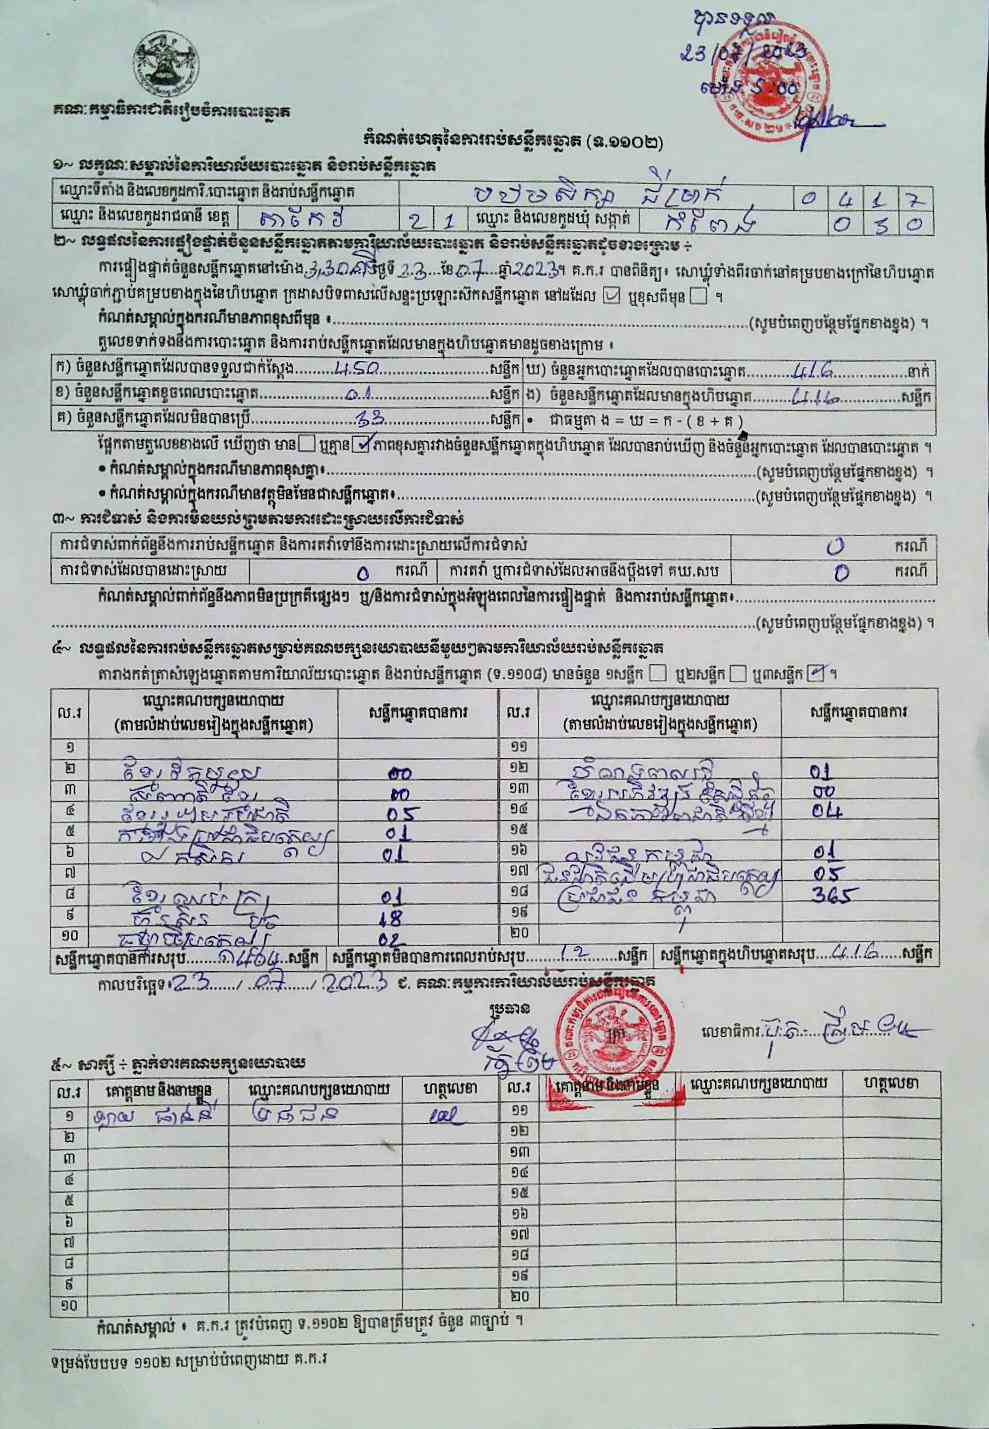 បានទទួល
23/07/2023
ម៉ោង 5:00
គណៈកម្មាធិការជាតិរៀបចំការបោះឆ្នោត
កំណត់ហេតុនៃការរាប់សន្លឹកឆ្នោត (ទ.១១០២)
១~ លក្ខណៈសម្គាល់នៃការិយាល័យបោះឆ្នោត និងរាប់សន្លឹកឆ្នោត
ឈ្មោះទីតាំង និងលេខកូដការិ.បោះឆ្នោត និងរាប់សន្លឹកឆ្នោត បឋមសិក្សា 0 4 1 7
ឈ្មោះ និងលេខកូដរាជធានី ខេត្ត តាកែវ 2 1 ឈ្មោះ និងលេខកូដឃុំ សង្កាត់ កំពែង 0 3 0
២~ លទ្ធផលនៃការផ្ទៀងផ្ទាត់ចំនួនសន្លឹកឆ្នោតតាមការិយាល័យបោះឆ្នោត និងរាប់សន្លឹកឆ្នោតដូចខាងក្រោម ÷
ការផ្ទៀងផ្ទាត់ចំនួនសន្លឹកឆ្នោតនៅម៉ោង 3,30 ថ្ងៃទី 23 ខែ 07 ឆ្នាំ 2023។ គ.ក.រ បានពិនិត្យ៖ សោឃ្លុំទាំងពីរចាក់នៅគម្របខាងក្រៅនៃហិបឆ្នោត
សោឃ្លុំចាក់ភ្ជាប់គម្របខាងក្នុងនៃហិបឆ្នោត ក្រដាសបិទពាសលើសន្ទះប្រឡោះស៊កសន្លឹកឆ្នោត នៅដដែល ☑ ឬខុសពីមុន ☐ ។
កំណត់សម្គាល់ក្នុងករណីមានភាពខុសពីមុន ៖ (សូមបំពេញបន្ថែមផ្នែកខាងខ្នង) ។
តួលេខទាក់ទងនឹងការបោះឆ្នោត និងការរាប់សន្លឹកឆ្នោតដែលមានក្នុងហិបឆ្នោតមានដូចខាងក្រោម ៖
ក) ចំនួនសន្លឹកឆ្នោតដែលបានទទួលជាក់ស្តែង 450 សន្លឹក ឃ) ចំនួនអ្នកបោះឆ្នោតដែលបានបោះឆ្នោត 416 នាក់
ខ) ចំនួនសន្លឹកឆ្នោតខូចពេលបោះឆ្នោត 01 សន្លឹក ង) ចំនួនសន្លឹកឆ្នោតដែលមានក្នុងហិបឆ្នោត 416 សន្លឹក
គ) ចំនួនសន្លឹកឆ្នោតដែលមិនបានប្រើ 33 សន្លឹក • ជាធម្មតា ង = ឃ = ក - ( ខ + គ )
ផ្អែកតាមតួលេខខាងលើ ឃើញថា មាន ☐ ឬគ្មាន ☑ ភាពខុសគ្នារវាងចំនួនសន្លឹកឆ្នោតក្នុងហិបឆ្នោត ដែលបានរាប់ឃើញ និងចំនួនអ្នកបោះឆ្នោត ដែលបានបោះឆ្នោត ។
• កំណត់សម្គាល់ក្នុងករណីមានភាពខុសគ្នា៖ (សូមបំពេញបន្ថែមផ្នែកខាងខ្នង) ។
• កំណត់សម្គាល់ក្នុងករណីមានវត្ថុមិនមែនជាសន្លឹកឆ្នោត៖ (សូមបំពេញបន្ថែមផ្នែកខាងខ្នង) ។
៣~ ការជំទាស់ និងការមិនយល់ព្រមតាមការដោះស្រាយលើការជំទាស់
ការជំទាស់ពាក់ព័ន្ធនឹងការរាប់សន្លឹកឆ្នោត និងការតវ៉ាទៅនឹងការដោះស្រាយលើការជំទាស់ 0 ករណី
ការជំទាស់ដែលបានដោះស្រាយ 0 ករណី ការតវ៉ា ឬការជំទាស់ដែលអាចនឹងប្តឹងទៅ គឃ.សប 0 ករណី
កំណត់សម្គាល់ពាក់ព័ន្ធនឹងភាពមិនប្រក្រតីផ្សេងៗ ឬ/និងការជំទាស់ក្នុងអំឡុងពេលនៃការផ្ទៀងផ្ទាត់ និងការរាប់សន្លឹកឆ្នោត៖
(សូមបំពេញបន្ថែមផ្នែកខាងខ្នង) ។
៤~ លទ្ធផលនៃការរាប់សន្លឹកឆ្នោតសម្រាប់គណបក្សនយោបាយនីមួយៗតាមការិយាល័យរាប់សន្លឹកឆ្នោត
តារាងកត់ត្រាសំឡេងឆ្នោតតាមការិយាល័យបោះឆ្នោត និងរាប់សន្លឹកឆ្នោត (ទ.១១០៨) មានចំនួន ១សន្លឹក ☐ ឬ២សន្លឹក ☐ ឬ៣សន្លឹក ☑ ។
ល.រ ឈ្មោះគណបក្សនយោបាយ (តាមលំដាប់លេខរៀងក្នុងសន្លឹកឆ្នោត) សន្លឹកឆ្នោតបានការ ល.រ ឈ្មោះគណបក្សនយោបាយ (តាមលំដាប់លេខរៀងក្នុងសន្លឹកឆ្នោត) សន្លឹកឆ្នោតបានការ
១ ១១
២ ខ្មែរ 00 ១២ 01
៣ ខ្មែរ 00 ១៣ ខ្មែរ 00
៤ ខ្មែររួបរួមជាតិ 05 ១៤ 04
៥ ប្រជាធិបតេយ្យ 01 ១៥
៦ កសិករ 01 ១៦ កម្ពុជា 01
៧ ១៧ 05
៨ ខ្មែរ 01 ១៨ ប្រជាជនកម្ពុជា 365
៩ ហ៊្វុនស៊ិនប៉ិច 18 ១៩
១០ ធម្មាធិបតេយ្យ 02 ២០
សន្លឹកឆ្នោតបានការសរុប 404 សន្លឹក សន្លឹកឆ្នោតមិនបានការពេលរាប់សរុប 12 សន្លឹក សន្លឹកឆ្នោតក្នុងហិបឆ្នោតសរុប 416 សន្លឹក
កាលបរិច្ឆេទ៖ 23 / 07 / 2023 ជ. គណៈកម្មការការិយាល័យរាប់សន្លឹកឆ្នោត
ប្រធាន
លេខាធិការ
៥~ សាក្សី ÷ ភ្នាក់ងារគណបក្សនយោបាយ
ល.រ គោត្តនាម និងនាមខ្លួន ឈ្មោះគណបក្សនយោបាយ ហត្ថលេខា ល.រ គោត្តនាម និងនាមខ្លួន ឈ្មោះគណបក្សនយោបាយ ហត្ថលេខា
១ ប្រជាជន ១១
២ ១២
៣ ១៣
៤ ១៤
៥ ១៥
៦ ១៦
៧ ១៧
៨ ១៨
៩ ១៩
១០ ២០
កំណត់សម្គាល់ ៖ គ.ក.រ ត្រូវបំពេញ ទ.១១០២ ឱ្យបានត្រឹមត្រូវ ចំនួន ៣ច្បាប់ ។
ទម្រង់បែបបទ ១១០២ សម្រាប់បំពេញដោយ គ.ក.រ